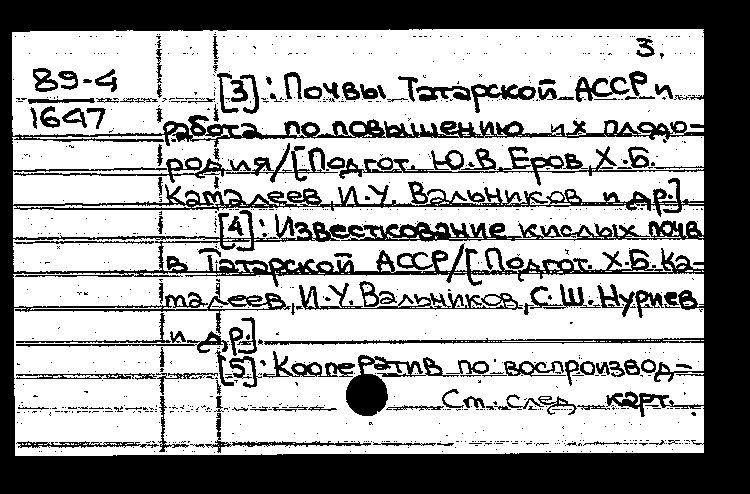 3.
89-4
1647
[3]: Почвы Татарской АССР и
работа по повышению их плодо-
родия/[Подгот. Ю.В. Еров, Х.Б.
Каталеев, И.У. Вальников и др.].
[4]: Известкование кислых почв
в Татарской АССР/[Подгот. Х.Б. Ка-
талеев, И.У. Вальников, С.Ш. Нуриев
и др.]
[5]: Кооператив по воспроизвод-
См. след. карт.